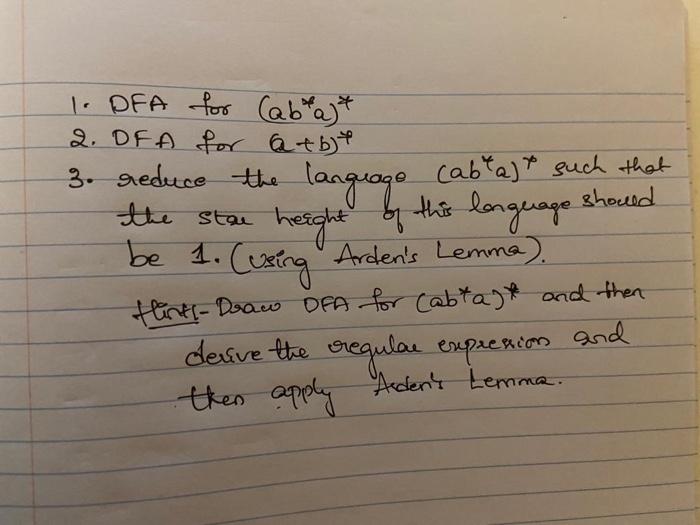 1. DFA for (ab*a)*
2. DFA for (a+b)*
3. reduce the language (ab*a)* such that
the star height of this language should
be 1. (using Arden's Lemma).
Hint:- Draw DFA for (ab*a)* and then
derive the regular expression and
then apply Arden's Lemma.